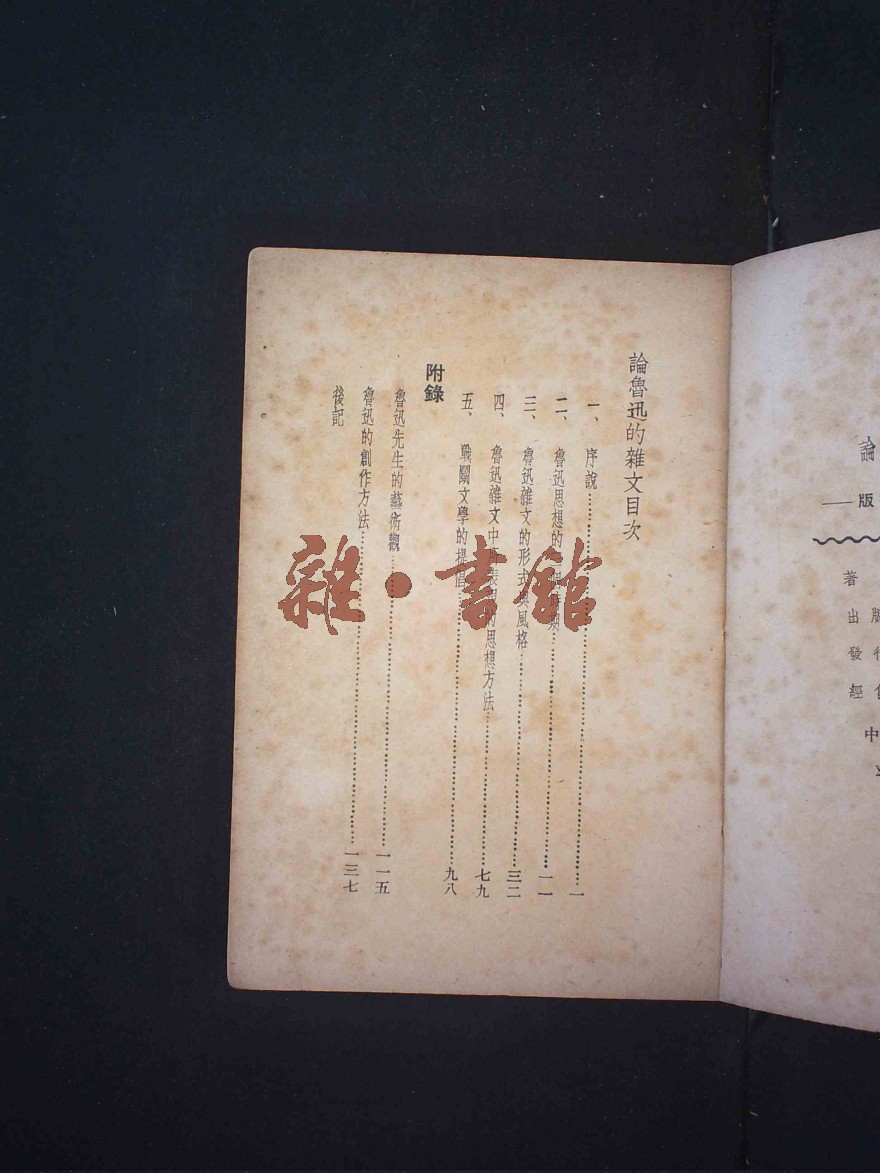 論魯迅的雜文目次
一、序說……一
二、魯迅思想的時期……一一
三、魯迅雜文的形式與風格……三二
四、魯迅雜文中所表現的思想方法……七九
五、戰鬭文學的提倡……九八
附錄
魯迅先生的藝術觀……一一五
魯迅的創作方法……一三七
後記
雜·書館
論
——版
著
出版
發行
經售
中